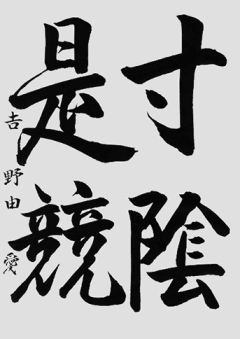 寸陰
是競
吉野由愛